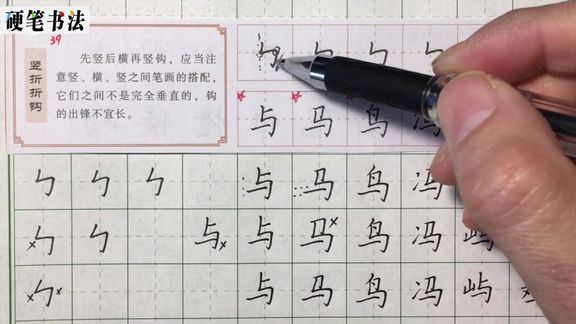 硬笔书法
39
竖折折钩
先竖后横再竖钩，应当注
意竖、横、竖之间笔画的搭配，
它们之间不是完全垂直的，钩
的出锋不宜长。
ㄣ ㄣ ㄣ ㄣ
与 马 鸟 冯
ㄣ ㄣ ㄣ 与 马 鸟 冯
×ㄣ ㄣ 与× 与 马× 鸟 冯 屿
×ㄣ× 与 马 鸟 冯 屿